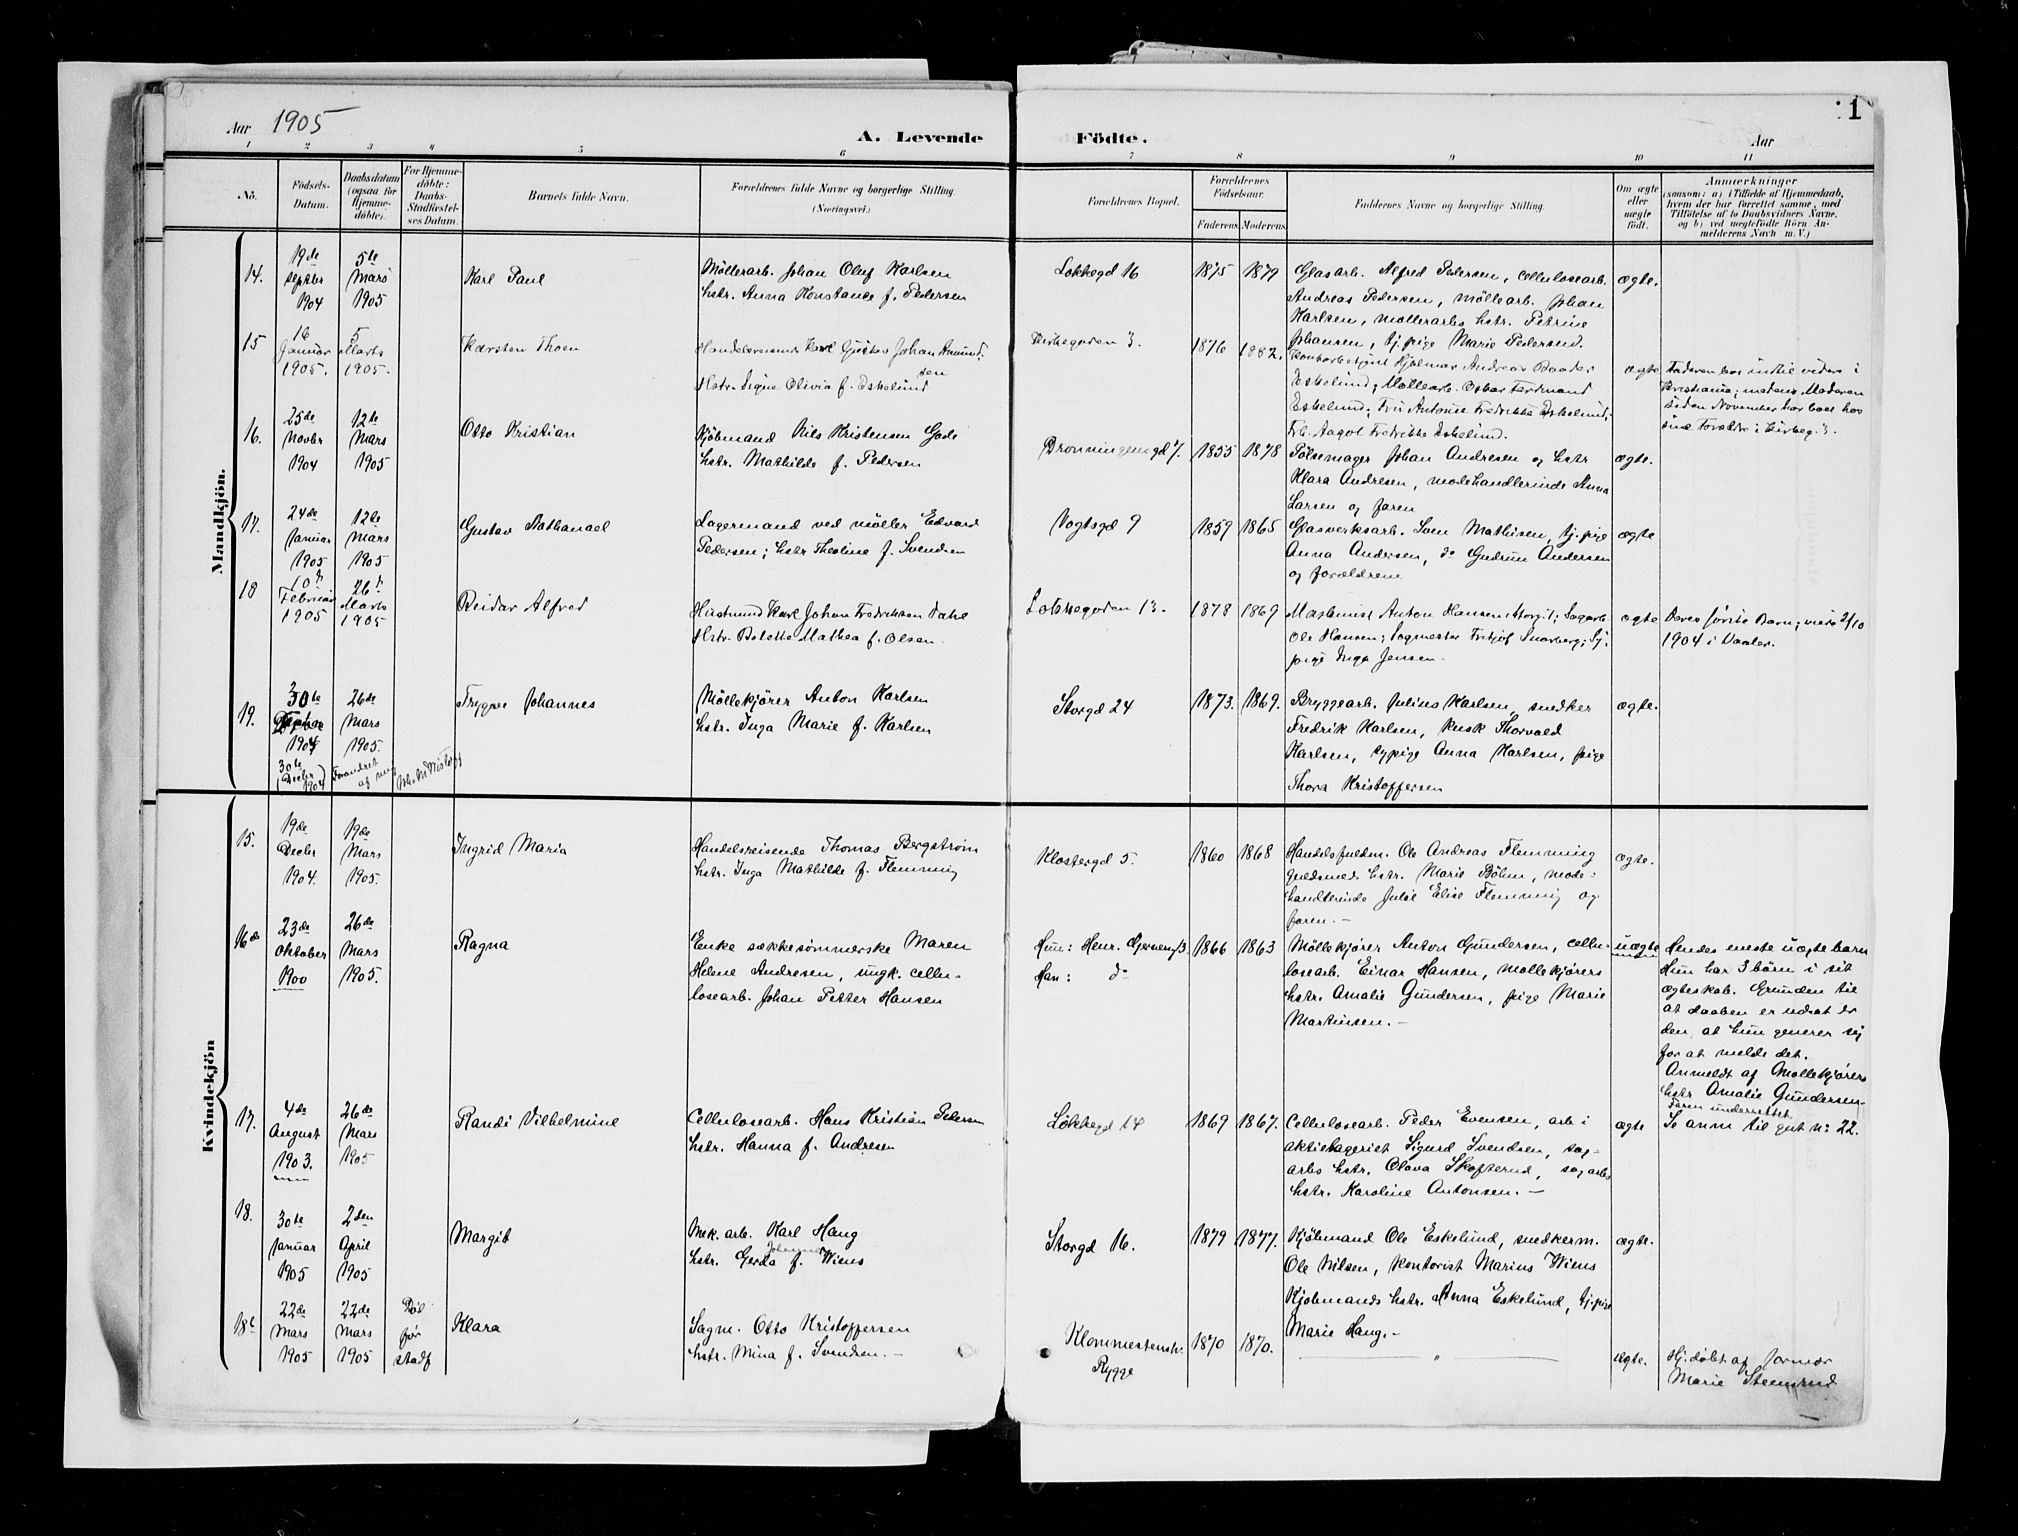 Aar 1905
A. Levende Födte.
Aar
1 2 3 4 5 6 7 8 9 10 11
No.
Födsels-
Datum.
Daabsdatum
(ogsaa for
Hjemme-
döbte).
For Hjemme-
döbte:
Daabs-
Stadfæstel-
ses Datum.
Barnets fulde Navn.
Forældrenes fulde Navne og borgerlige Stilling.
(Næringsvei.)
Forældrenes Bopæl.
Forældrenes
Födselsaar.
Faderens. Moderens.
Faddernes Navne og borgerlige Stilling.
Om ægte
eller
uægte
födt.
Anmærkninger
(saasom: a) i Tilfælde af Hjemmedaab,
hvem der har forrettet samme, med
Tilföielse af to Daabsvidners Navne,
og b) ved uegtefödte Börn An-
melderens Navn m. V.)
Mandkjön.
14.
19de
septbr
1904
5te
Mars
1905
Karl Paul
Møllerarb. Johan Oluf Karlsen
hstr. Anna Konstance f. Pedersen
Løkkegd 16
1875 1879
Glasarb. Alfred Pedersen, cellulosearb.
Andreas Pedersen, møllearb. Johan
Karlsen, møllerarbs hstr. Petrine
Johansen, tj.pige Marie Pedersen.
ægte.
15
16
Januar
1905.
5
Marts
1905.
Karsten Thoen
Handelsmand Karl Gustav Johan Amund-
sen
Hstr. Signe Olivia f. Eskelund
Kirkegaden 3.
1876 1882.
Hjalmar Andreas Baader
Eskelund; Møllearb. Oskar Ferdinand
Eskelund; Fru Antonie Fredrikke Eskelund;
Frk. Aagot Fredrikke Eskelund.
ægte
Faderen bor indtil videre i
Kristiania; medens Moderen
siden November har boet hos
sine Forældre i Kirkeg. 3.
16.
25de
Novbr
1904
12te
Mars
1905
Otto Kristian
Kjøbmand Nils Kristensen Gade
hstr. Mathilde f. Pedersen
Dronningensgd 7.
1855 1878
Pølsemager Johan Andresen og hstr
Klara Andresen, modehandlerinde Anna
Larsen og faren
ægte.
17.
24de
Januar
1905
12te
Mars
1905
Gustav Nathanael
Lagermand ved møller Edvard
Pedersen; hstr Theoline f. Svendsen
Vogtsgd 9
1859 1865
Glasverksarb. Sven Mathisen, tj.pige
Anna Andersen, do Gudrun Andersen
og forældrene
ægte
18
10d
Februar
1905
26d
Marts
1905
Reidar Alfred
Husmand Karl Johan Fredriksen Dahl
Hstr. Bolette Mathea f. Olsen.
Løkkegaden 13.
1878 1869
Maskinist Anton Hansen, Storgt; Sagarb.
Ole Hansen; Sagmester Fritjof Snarberg; Sy-
pige Inga Jensen.
ægte
Deres første Barn; viede 2/10
1904 i Vaaler.
19.
30te
1904
30te
(Decbr)
1904
26de
Mars
1905.
Forandret
af mig
Trygve Johannes
Møllekjører Anton Karlsen
hstr. Inga Marie f. Karlsen
Storgd 24
1873. 1869.
Bryggearb. Julius Karlsen, snedker
Fredrik Karlsen, kusk Thorvald
Karlsen, sypige Anna Karlsen, pige
Thora Kristoffersen
ægte.
Kvindekjön
15.
19de
Decbr
1904.
19de
Mars
1905.
Ingrid Maria
Handelsreisende Thomas Bergstrøm
hstr. Inga Mathilde f. Flemming
Klostergd 5.
1860 1868
Handelsfuldm. Ole Andreas Flemming
guldsmed hstr. Marie Bøhm, mode-
handlerinde Julie Elise Flemming og
faren. –
ægte.
16de
23de
Oktober
1900
26de
Mars
1905.
Ragna
Enke sækkesømmerske Maren
Helene Andresen, ungk. cellu-
losearb. Johan Petter Hansen
Hun: Henr. Gjernesg 3
Han: do
1866 1863
Møllekjører Anton Gundersen, cellu-
losearb. Einar Hansen, møllekjørers
hstr. Amalie Gundersen, pige Marie
Martinsen. –
uægte
Hendes eneste uægte barn
Hun har 3 børn i sit
ægteskab. Grunden til
at daaben er udsat er
den, at hun generer sig
for at melde det.
Anmeldt af Møllekjørers
hstr Amalie Gundersen.
Faren underrettet.
17.
4de
August
1903.
26de
Mars
1905
Randi Vilhelmine
Cellulosearb. Hans Kristian Pedersen
hstr. Hanna f. Andresen
Løkkegd 14
1869 1867.
Cellulosearb. Peder Evensen, arb i
aktietageriet Sigurd Svendsen, sag-
arbs hstr. Olava Skofterud, sagarbs
hstr. Karoline Antonsen. –
ægte
Se anm til gut no 22.
18.
30te
Januar
1905
2den
April
1905
Margit
Mek. arb. Karl Haug
Johanne
hstr. Gerda f. Wiens
Storgd 16.
1879 1877.
Kjøbmand Ole Eskelund, snedkerm.
Ole Nilsen, kontorist Marius Wiens
Kjøbmands hstr. Anna Eskelund, tj.pige
Marie Haug. –
ægte.
18b
22de
Mars
1905
22de
Mars
1905
Død
før
stadf
Klara
Sagm. Otto Kristoffersen
hstr. Mina f. Svendsen. –
Klommestensh.
Rygge
1870 1870.
— " —
ægte.
Hj.døbt af formor
Marie Stensrud